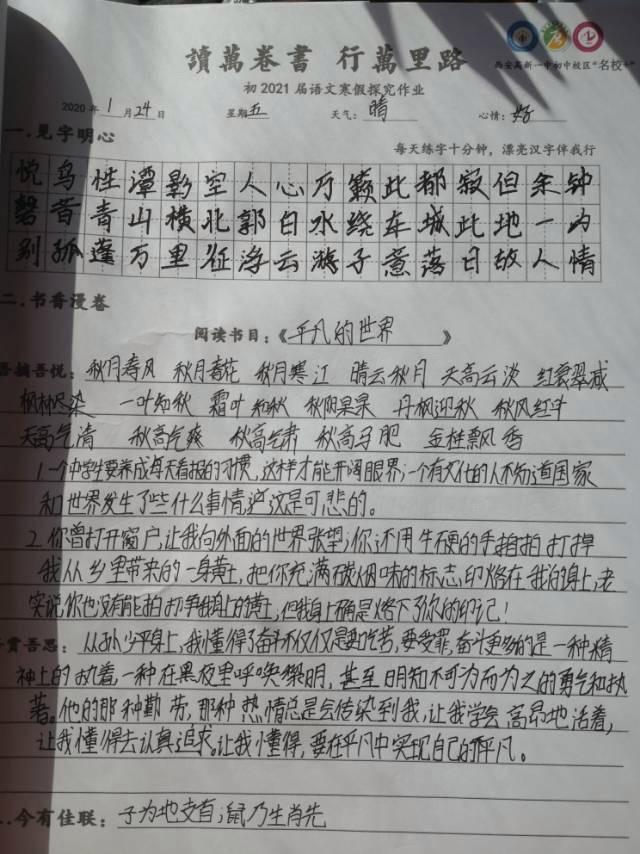 讀萬卷書 行萬里路
西安高新一中初中校区"名校+"
初2021届语文寒假探究作业
2020年1月24日 星期五 天气：晴 心情：好
一.見字明心
每天练字十分钟，漂亮汉字伴我行
悦鸟性潭影空人心万籁此都寂但余钟
磬音青山横北郭白水绕东城此地一为
别孤蓬万里征浮云游子意落日故人情
二.书香漫卷
阅读书目：《平凡的世界》
吾摘吾悦：秋月春风 秋月春花 秋月寒江 晴云秋月 天高云淡 红衰翠减
枫林尽染 一叶知秋 霜叶知秋 秋阳杲杲 丹枫迎秋 秋风红牛
天高气清 秋高气爽 秋高气肃 秋高马肥 金桂飘香
1.一个中学生要养成每天看报的习惯,这样才能开阔眼界;一个有文化的人不知道国家
和世界发生了些什么事情,这是可悲的。
2.你曾打开窗户,让我向外面的世界张望;你还用生硬的手拍拍打掉
我从乡里带来的一身黄土,把你充满碳烟味的标志印烙在我的身上;老
实说,你也没有能拍打净我身上的黄土,但我身上确是烙下了你的印记！
吾赏吾思：从孙少平身上,我懂得了奋斗不仅仅是要吃苦,要受罪,奋斗更多的是一种精
神上的执着,一种在黑夜里呼唤黎明,甚至明知不可为而为之的勇气和执
著。他的那种勤劳,那种热情总是会传染到我,让我学会高昂地活着,
让我懂得去认真追求。让我懂得,要在平凡中实现自己的不平凡。
今有佳联：子为地支首;鼠乃生肖先